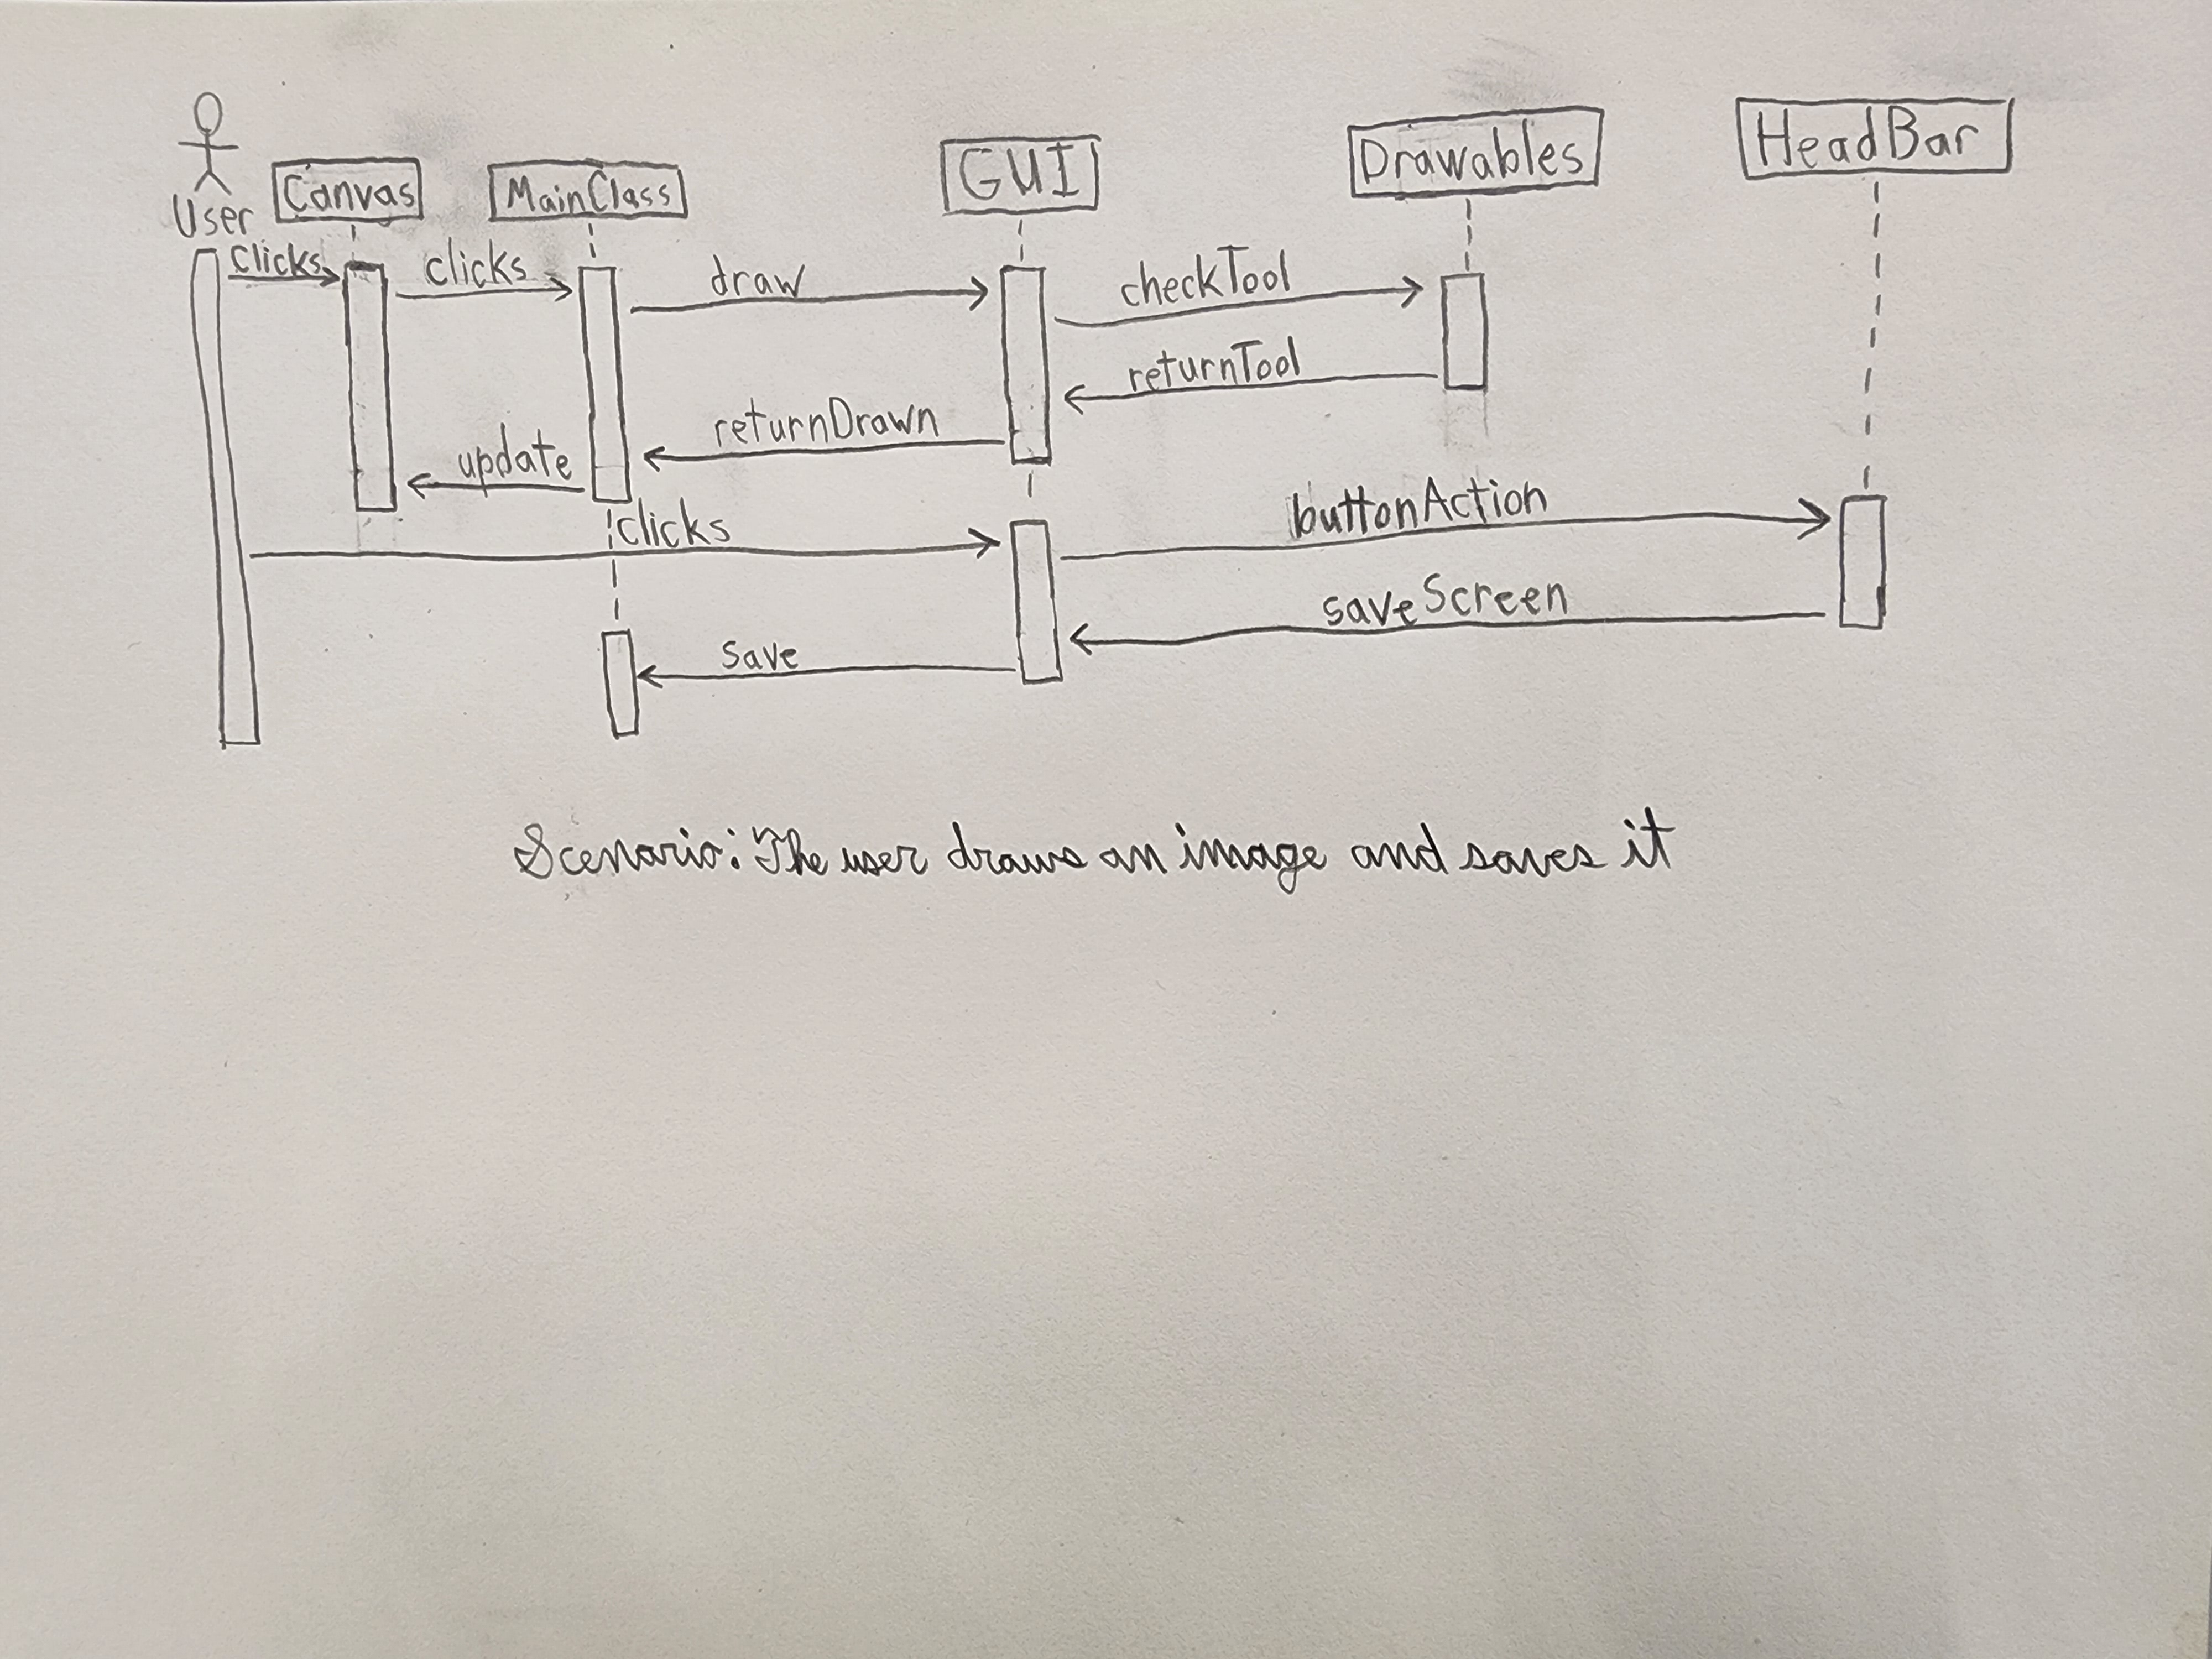 User
Canvas
MainClass
GUI
Drawables
HeadBar
clicks
clicks
draw
checkTool
returnTool
returnDrawn
update
clicks
buttonAction
saveScreen
save
Scenario: The user draws an image and saves it